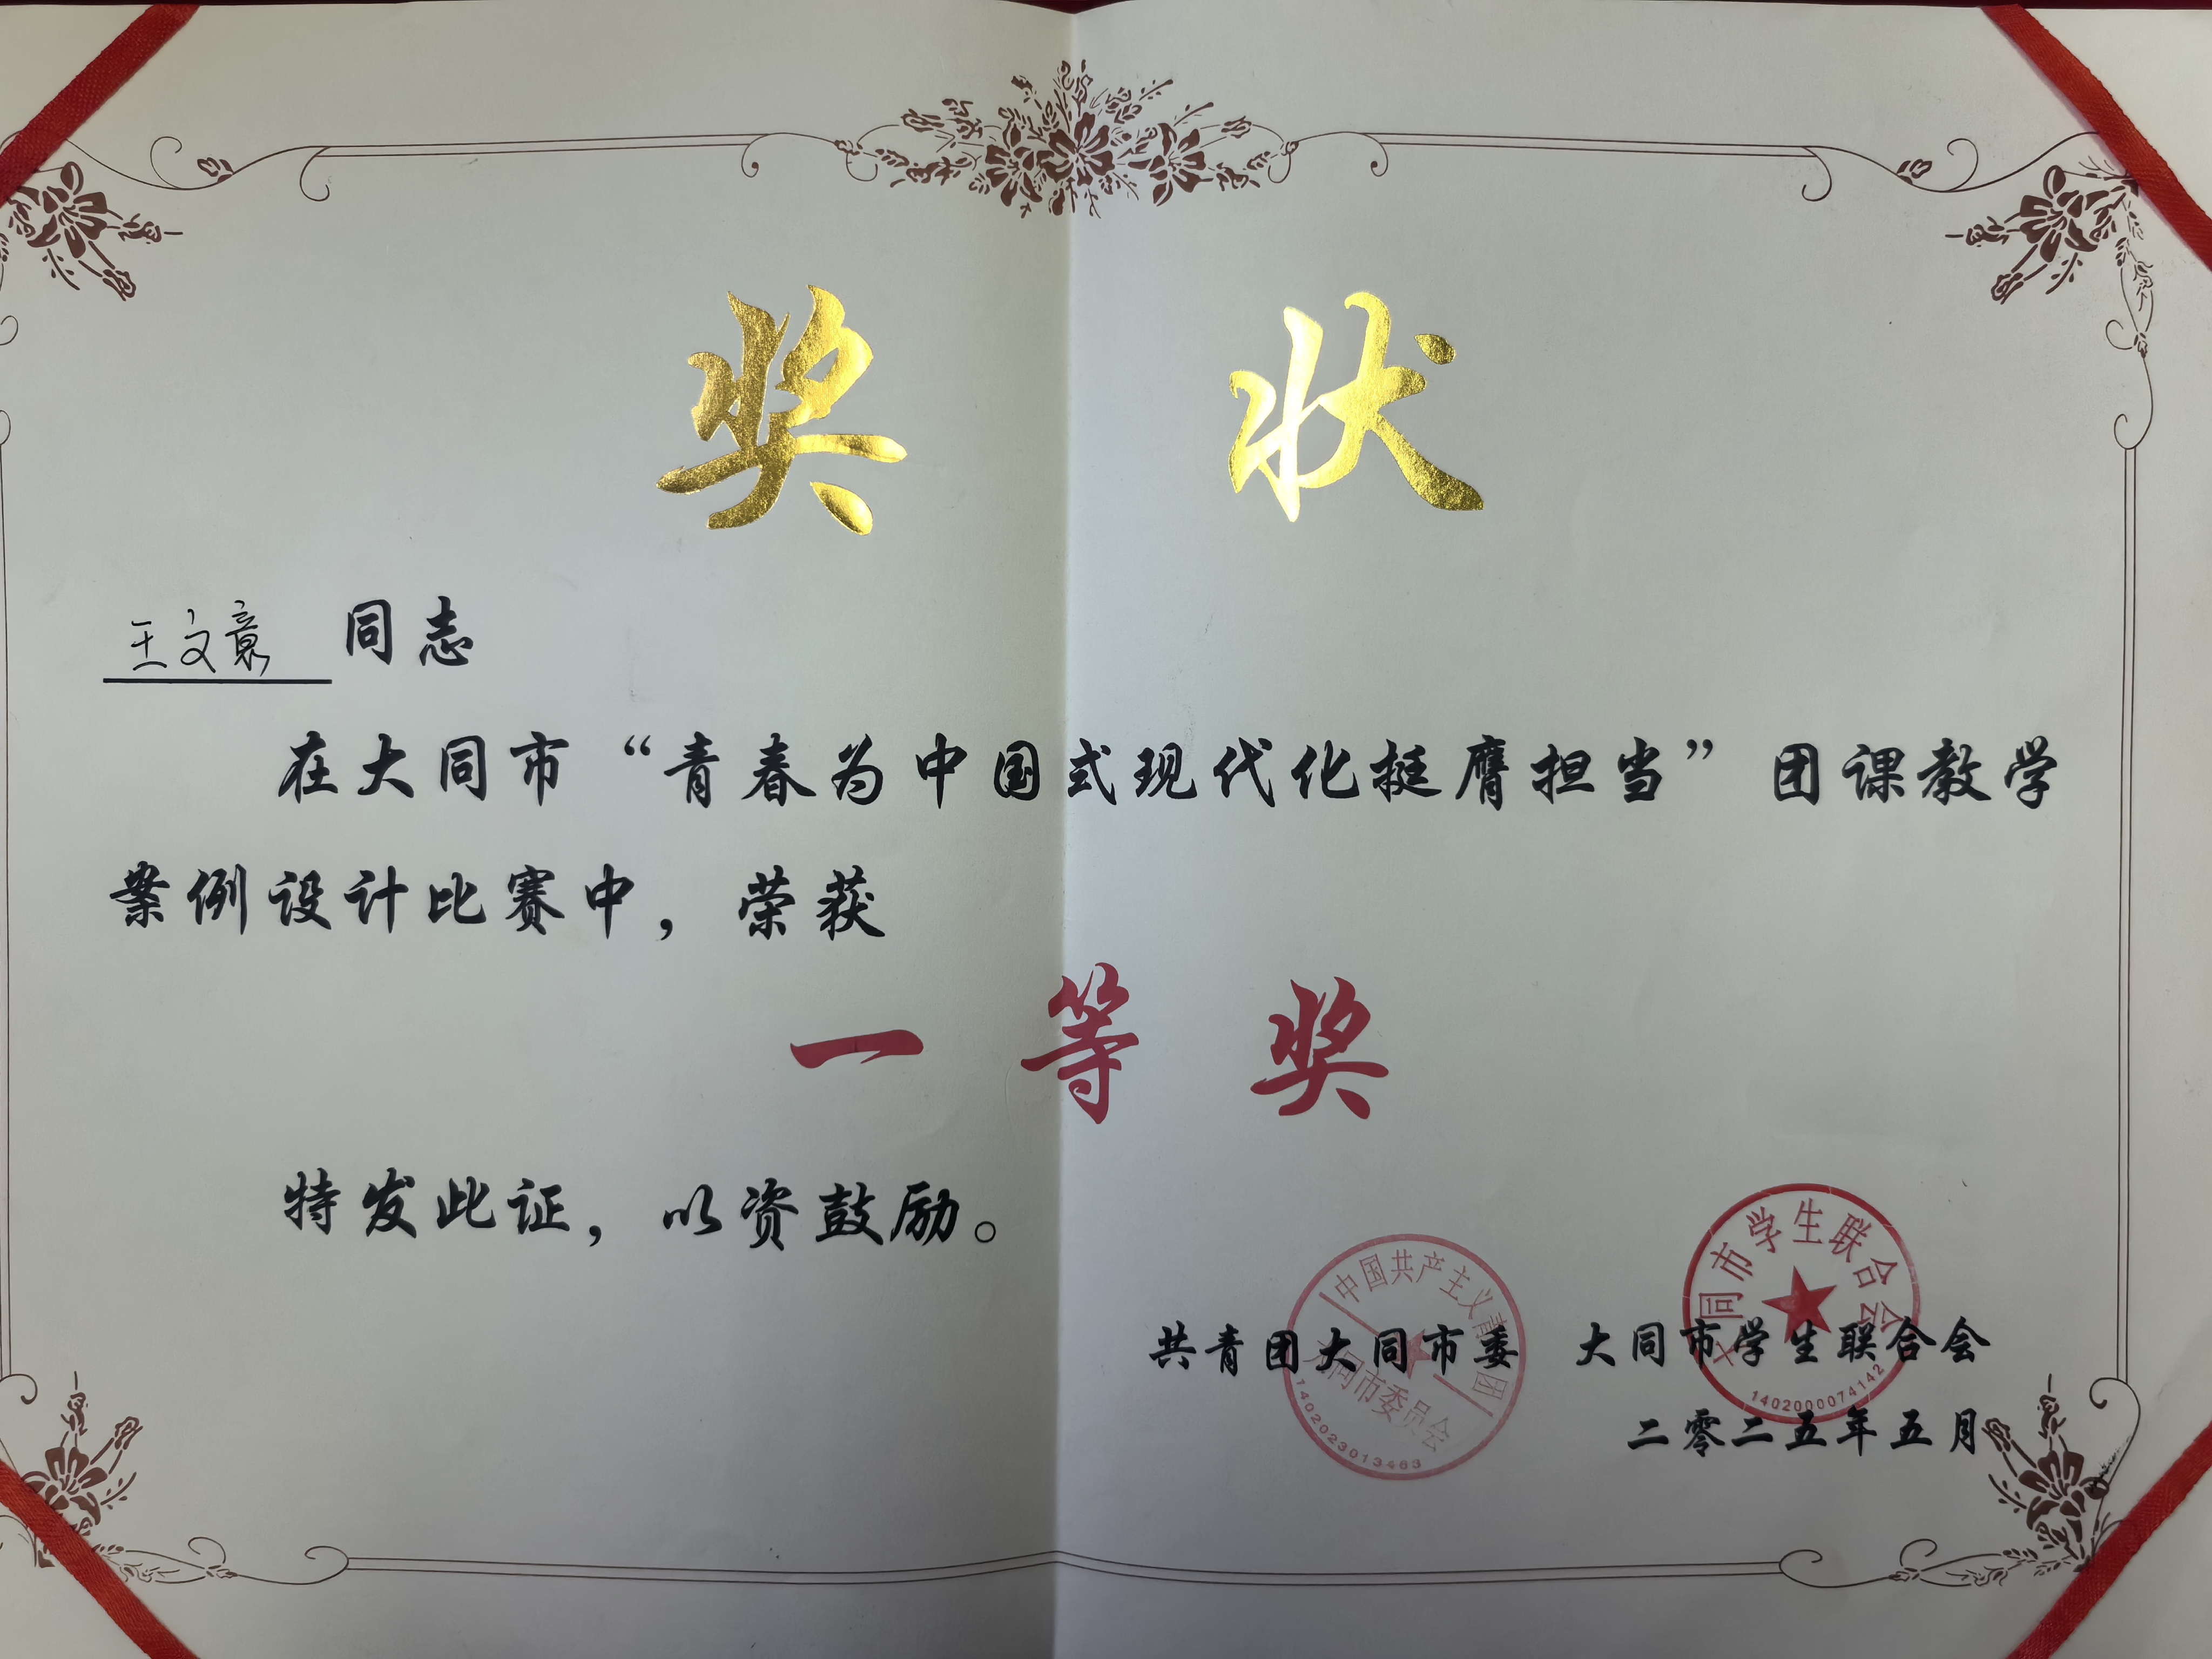 奖状
王文意同志
在大同市“青春为中国式现代化挺膺担当”团课教学
案例设计比赛中，荣获
一等奖
特发此证，以资鼓励。
中国共产主义青年团
大同市委员会
1402023013463
大同市学生联合会
1402000074142
共青团大同市委 大同市学生联合会
二零二五年五月